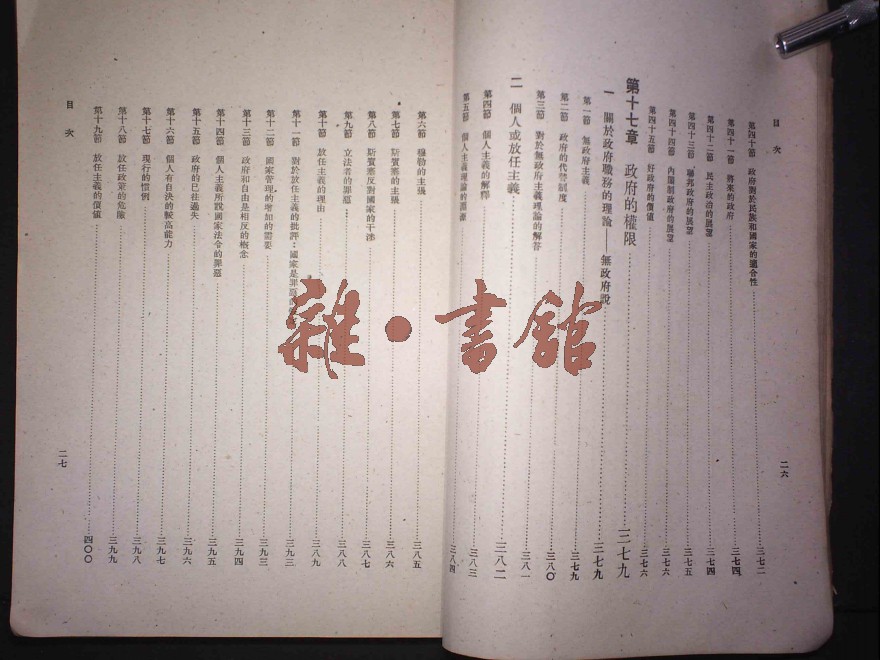 目次
第四十節 政府對於民族和國家的適合性 三七二
第四十一節 將來的政府 三七四
第四十二節 民主政治的展望 三七四
第四十三節 聯邦政府的展望 三七五
第四十四節 內閣制政府的展望 三七六
第四十五節 好政府的價值 三七六
第十七章 政府的權限 三七九
一 關於政府職務的理論——無政府說 三七九
第一節 無政府主義 三七九
第二節 政府的代替制度 三八〇
第三節 對於無政府主義理論的解答 三八一
二 個人或放任主義 三八二
第四節 個人主義的解釋 三八三
第五節 個人主義理論的淵源 三八四
二六
目次
第六節 穆勒的主張 三八五
第七節 斯賓塞的主張 三八六
第八節 斯賓塞反對國家的干涉 三八七
第九節 立法者的罪惡 三八八
第十節 放任主義的理由 三八九
第十一節 對於放任主義的批評：國家是罪惡 三九三
第十二節 國家管理的增加的需要 三九三
第十三節 政府和自由是相反的概念 三九四
第十四節 個人主義所說國家法令的罪惡 三九五
第十五節 政府的已往過失 三九六
第十六節 個人有自決的較高能力 三九七
第十七節 現行的慣例 三九八
第十八節 放任政策的危險 三九九
第十九節 放任主義的價值 四〇〇
二七
雜·書館